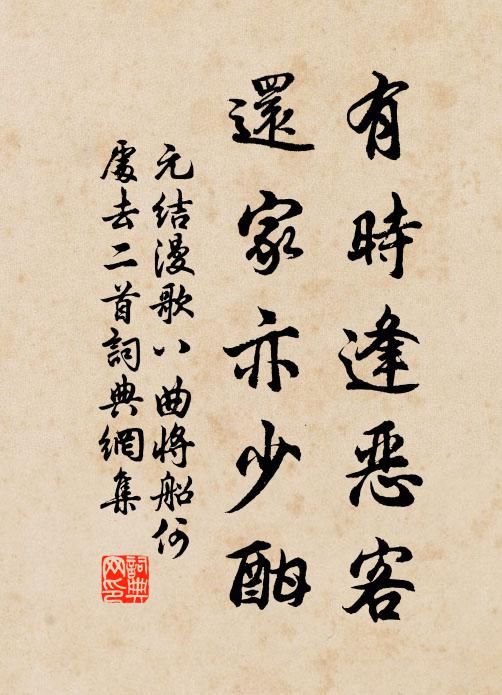 有時逢恶客
還家亦少酣
元结漫歌八曲将船何
處去二首詞典網集
詞典网印